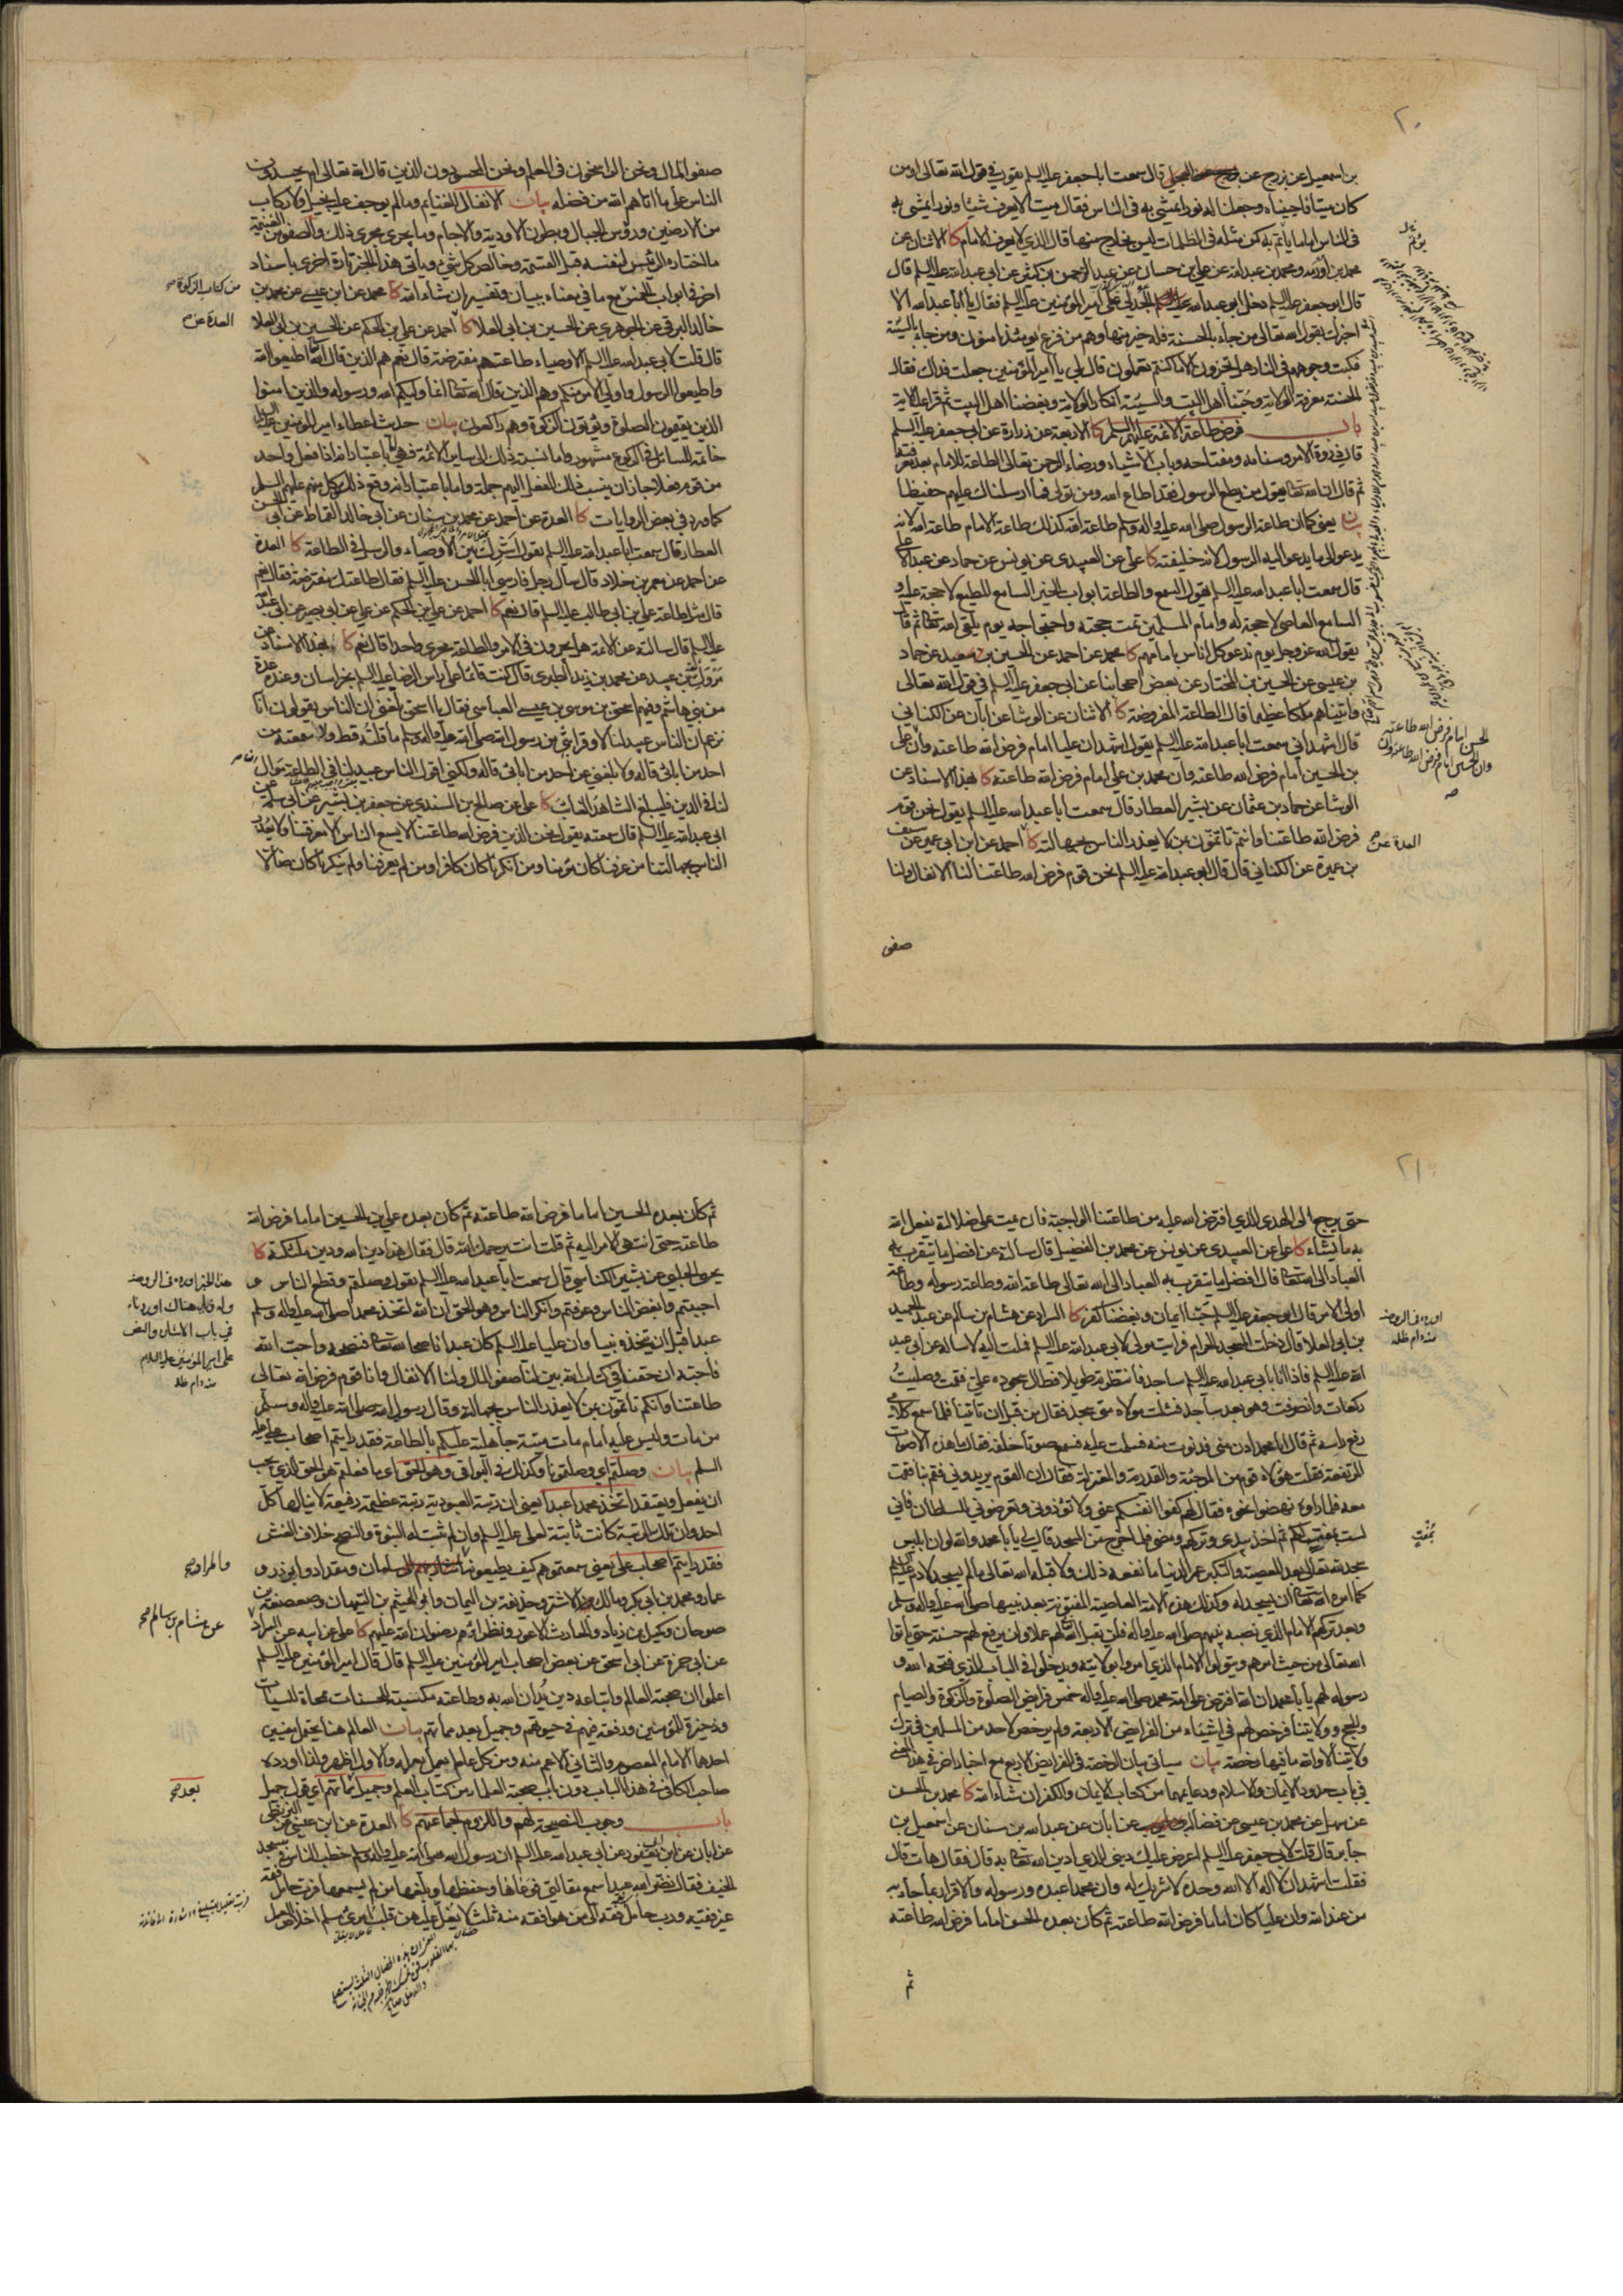 ٢٠
بن اسمعيل عن بزرج عن قال سمعت ابا جعفر عليه السلم يقول في قول الله تعالى اومن
كان ميتا فاحييناه وجعلنا له نورا يمشي به في الناس فقال ميت لا يعرف شيئا ونورا يمشي به
في الناس اماما يأتم به كمن مثله في الظلمات ليس بخارج منها قال الذي لا يعرف الامام كا الاثنان عن
محمد بن اورمه ومحمد بن عبد الله عن علي بن حسان عن عبد الرحمن بن كثير عن ابي عبد الله عليه السلم قال
قال ابو جعفر عليه السلم دخل ابو عبد الله الجدلي على امير المؤمنين عليه السلم فقال يا أبا عبد الله الا
اخبرك بقول الله تعالى من جاء بالحسنة فله خير منها وهم من فزع يومئذ امنون ومن جاء بالسيئة
فكبت وجوههم في النار هل تجزون الا ما كنتم تعملون قال بلى يا أمير المؤمنين جعلت فداك فقال
الحسنة معرفة الولاية وحبنا أهل البيت والسيئة انكار الولاية وبغضنا أهل البيت ثم قرأ عليه الاية
باب فرض طاعة الائمة عليهم السلم كا الاربعة عن زرارة عن ابي جعفر عليه السلم
قال ذروة الامر وسنامه ومفتاحه وباب الاشياء ورضاء الرحمن تعالى الطاعة للامام بعد معرفته
ثم قال ان الله تعالى يقول من يطع الرسول فقد اطاع الله ومن تولى فما ارسلناك عليهم حفيظا
بيان يعني كما ان طاعة الرسول صلى الله عليه واله وسلم طاعة الله كذلك طاعة الامام طاعة الله لانه
يدعو الى ما يدعو اليه الرسول لانه خليفته كا علي عن العبيدي عن يونس عن حماد عن عبد الاعلى
قال سمعت ابا عبد الله عليه السلم يقول السمع والطاعة ابواب الخير السامع المطيع لا حجة عليه و
السامع العاصي لا حجة له وامام المسلمين تمت حجته واحتجاجه يوم يلقى الله تعالى ثم قال
يقول الله عز وجل يوم ندعو كل اناس بامامهم كا محمد عن احمد عن الحسين بن سعيد عن حماد
بن عيسى عن الحسين بن المختار عن بعض اصحابنا عن ابي جعفر عليه السلم في قول الله تعالى
وآتيناهم ملكا عظيما قال الطاعة المفروضة كا الاثنان عن الوشا عن ابان عن الكناني
قال اشهد اني سمعت ابا عبد الله عليه السلم يقول اشهد ان عليا امام فرض الله طاعته وان علي
بن الحسين امام فرض الله طاعته وان محمد بن علي امام فرض الله طاعته كا بهذا الاسناد عن
الوشا عن حماد بن عثمان عن بشير العطار قال سمعت ابا عبد الله عليه السلم يقول نحن قوم
فرض الله طاعتنا وانتم تأتمون بمن لا يعذر الناس بجهالته كا احمد عن ابن ابي عمير عن سيف
بن عميرة عن الكناني قال قال ابو عبد الله عليه السلم نحن قوم فرض الله طاعتنا لنا الانفال ولنا
صفو
الحسن امام فرض الله طاعته
وان الحسين امام فرض الله طاعته وان
العدة عن صح
صفو المال ونحن الراسخون في العلم ونحن المحسودون الذين قال الله تعالى ام يحسدون
الناس على ما اتاهم الله من فضله بيان الانفال الغنايم وما لم يوجف عليه بخيل ولا ركاب
من الارضين ورؤس الجبال وبطون الاودية والاجام وما يجري مجرى ذلك والصفو من الغنيمة
ما اختاره الرئيس لنفسه قبل القسمة وخالص كل شيء ويأتي هذا الخبر تارة اخرى باسناد
اخر في ابواب الخمس مع ما في معناه ببيان وتفسير ان شاء الله كا محمد عن ابن عيسى عن محمد بن
خالد البرقي عن الجوهري عن الحسين بن ابي العلا كا احمد عن علي بن الحكم عن الحسين بن ابي العلا
قال قلت لابي عبد الله عليه السلم الاوصياء طاعتهم مفترضة قال نعم هم الذين قال الله اطيعوا الله
واطيعوا الرسول واولي الامر منكم وهم الذين قال الله تعالى انما وليكم الله ورسوله والذين امنوا
الذين يقيمون الصلوة ويؤتون الزكوة وهم راكعون بيان حديث اعطاء امير المؤمنين عليه السلم
خاتمه السائل في الركوع مشهور واما نسبة ذلك الى ساير الائمة فهي اما باعتبار انه اذا فعل واحد
من قوم فعلا جاز ان ينسب ذلك الفعل اليهم جملة واما باعتبار انه وقع ذلك من كل منهم عليهم السلم
كما ورد في بعض الروايات كا العدة عن احمد عن محمد بن سنان عن ابي خالد القماط عن ابي الحسن
العطار قال سمعت ابا عبد الله عليه السلم يقول اشرك بين الاوصياء والرسل في الطاعة كا العدة
عن احمد عن معمر بن خلاد قال سأل رجل فارسي ابا الحسن عليه السلم فقال طاعتك مفترضة فقال نعم
قال مثل طاعة علي بن ابي طالب عليه السلم قال نعم كا احمد عن علي بن الحكم عن علي عن ابي بصير عن ابي عبد الله
عليه السلم قال سألته عن الائمة هل يجرون في الامر والطاعة مجرى واحد قال نعم كا بهذا الاسناد عن
مروك بن عبيد عن محمد بن زيد الطبري قال كنت قائما على رأس الرضا عليه السلم بخراسان وعنده عدة
من بني هاشم وفيهم اسحق بن موسى بن عيسى العباسي فقال يا اسحق بلغني ان الناس يقولون انا
نزعم ان الناس عبيد لنا لا وقرابتي من رسول الله صلى الله عليه واله وسلم ما قلته قط ولا سمعته من
احد من ابائي قاله ولا بلغني عن احد من ابائي قاله ولكني اقول الناس عبيد لنا في الطاعة موال
لنا في الدين فليبلغ الشاهد الغائب كا علي عن صالح بن السندي عن جعفر بن بشير عن ابي سلمة عن
ابي عبد الله عليه السلم قال سمعته يقول نحن الذين فرض الله طاعتنا لا يسع الناس الا معرفتنا ولا يعذر
الناس بجهالتنا من عرفنا كان مؤمنا ومن انكرنا كان كافرا ومن لم يعرفنا ولم ينكرنا كان ضالا
من كتاب الزكوة صح
العدة عن صح
٢١
حتى يرجع الى الهدى الذي افترض الله عليه من طاعتنا الواجبة فان يمت على ضلالته يفعل الله
به ما يشاء كا علي عن العبيدي عن يونس عن محمد بن الفضيل قال سألته عن افضل ما يتقرب به
العباد الى الله تعالى قال افضل ما يتقرب به العباد الى الله تعالى طاعة الله وطاعة رسوله وطاعة
اولي الامر قال ابو جعفر عليه السلم حبنا ايمان وبغضنا كفر كا السراد عن هشام بن سالم عن عبد الحميد
بن ابي العلا قال دخلت المسجد الحرام فرأيت مولى لابي عبد الله عليه السلم فملت اليه لاسأله عن ابي عبد
الله عليه السلم فاذا انا بابي عبد الله عليه السلم ساجدا فانتظرته طويلا فطال سجوده علي فقمت وصليت
ركعات وانصرفت وهو بعد ساجد فسألت مولاه متى سجد فقال من قبل ان تأتينا فلما سمع كلامي
رفع رأسه ثم قال ابا محمد ادن مني فدنوت منه فسلمت عليه فسمع صوتا خلفه فقال ما هذه الاصوات
المرتفعة فقلت هؤلاء قوم من المرجئة والقدرية والمعتزلة فقال ان القوم يريدوني فقم بنا فقمت
معه فلما راوه نهضوا نحوه فقال لهم كفوا انفسكم عني ولا تؤذوني وتعرضوني للسلطان فاني
لست بمفت لكم ثم اخذ بيدي وتركهم ومضى فلما خرج من المسجد قال لي يا ابا محمد والله لو ان ابليس
سجد لله تعالى بعد المعصية والتكبر عمر الدنيا ما نفعه ذلك ولا قبله الله تعالى ما لم يسجد لادم عليه السلم
كما امره الله تعالى ان يسجد له وكذلك هذه الامة العاصية المفتونة بعد نبيها صلى الله عليه واله وسلم
وبعد تركهم الامام الذي نصبه نبيهم صلى الله عليه واله لهم فلن يقبل الله لهم عملا ولن يرفع لهم حسنة حتى يأتوا
الله تعالى من حيث امرهم ويتولوا الامام الذي امروا بولايته ويدخلوا في الباب الذي فتحه الله و
رسوله لهم يا با محمد ان الله افترض على امة محمد صلى الله عليه واله خمس فرايض الصلوة والزكوة والصيام
والحج وولايتنا فرخص لهم في اشياء من الفرايض الاربعة ولم يرخص لاحد من المسلمين في ترك
ولايتنا لا والله ما فيها رخصة بيان سيأتي بيان الرخصة في الفرايض الاربع مع اخبار اخر في هذا المعنى
في باب حدود الايمان والاسلام ودعايمهما من كتاب الايمان والكفر ان شاء الله كا محمد بن الحسن
عن سهل عن محمد بن عيسى عن فضالة عن ابان عن عبد الله بن سنان عن اسمعيل بن
جابر قال قلت لابي جعفر عليه السلم اعرض عليك ديني الذي ادين الله تعالى به قال فقال هات قال
فقلت اشهد ان لا اله الا الله وحده لا شريك له وان محمدا عبده ورسوله والاقرار بما جاء به
من عند الله وان عليا كان اماما فرض الله طاعته ثم كان بعده الحسن اماما فرض الله طاعته
ثم
اورده في الروضة
منه دام ظله
ثم كان بعده الحسين اماما فرض الله طاعته ثم كان بعده علي بن الحسين اماما فرض الله
طاعته حتى انتهى الامر اليه ثم قلت انت يرحمك الله قال فقال هذا دين الله ودين ملئكته كا
يحيى الحلبي عن بشير الكناسي قال سمعت ابا عبد الله عليه السلم يقول وصلتم وقطع الناس و
احببتم وابغض الناس وعرفتم وانكر الناس وهو الحق ان الله اتخذ محمدا صلى الله عليه واله وسلم
عبدا قبل ان يتخذه نبيا وان عليا عليه السلم كان عبدا ناصحا لله تعالى فنصحه واحب الله
فاحبه ان حقنا في كتاب الله بين لنا صفو المال ولنا الانفال وانا قوم فرض الله تعالى
طاعتنا وانكم تأتمون بمن لا يعذر الناس بجهالته وقال رسول الله صلى الله عليه واله وسلم
من مات وليس عليه امام مات ميتة جاهلية عليكم بالطاعة فقد رايتم اصحاب علي عليه
السلم بيان وصلتم اي وصلتمونا وكذلك في البواقي وهو الحق اي ما فعلتم هو الحق الذي يجب
ان يفعل ويعتقد اتخذ محمدا عبدا يعني ان رتبة العبودية رتبة عظيمة رفيعة لا ينالها كل
احد وان تلك الرتبة كانت ثابتة لعلي عليه السلم وان لم يثبت له النبوة والنصح خلاف الغش
فقد رايتم اصحاب علي يعني سمعتموهم كيف يطيعونه سلمان ومقداد وابو ذر و
عمار ومحمد بن ابي بكر ومالك الاشتر وحذيفة بن اليمان وابو الهيثم بن التيهان وصعصعة بن
صوحان وكميل بن زياد والحارث الاعور ونظراؤهم رضوان الله عليهم كا علي عن ابيه عن السراد
عن ابي حمزة عن ابي اسحق عن بعض اصحاب امير المؤمنين عليه السلم قال قال امير المؤمنين عليه السلم
اعلموا ان صحبة العالم واتباعه دين يدان الله به وطاعته مكسبة للحسنات ممحاة للسيئات
وذخيرة للمؤمنين ورفعة فيهم في حيوتهم وجميل بعد مماتهم بيان العالم هنا يحتمل معنيين
احدهما الامام المعصوم والثاني الاعم منه ومن كل عالم يعمل بعلمه والاول اظهر ولذا اورده
صاحب الكافي في هذا الباب دون باب صحبة العلماء من كتاب العلم وجميل مماتهم اي قول جميل
باب وجوب النصيحة لهم واللزوم لجماعتهم كا العدة عن ابن عيسى عن البزنطي
عن ابان عن ابن ابي يعفور عن ابي عبد الله عليه السلم ان رسول الله صلى الله عليه واله وسلم خطب الناس في مسجد
الخيف فقال نضر الله عبدا سمع مقالتي فوعاها وحفظها وبلغها من لم يسمعها فرب حامل فقه
غير فقيه ورب حامل فقه الى من هو افقه منه ثلث لا يغل عليهن قلب امرئ مسلم اخلاص العمل
هذا الخبر اورده في الروضة
في باب الاشارة والنص
على امير المؤمنين عليه السلام
منه دام ظله
والمراد صح
عن هشام بن سالم صح
بعد صح